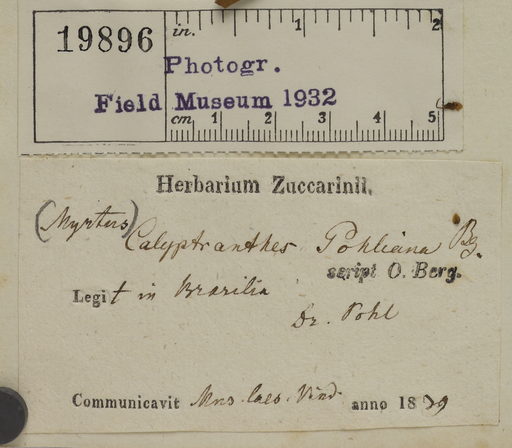 19896
in. 1 2
Photogr.
Field Museum 1932
cm. 1 2 3 4 5
Herbarium Zuccarinii.
(Myrtus) Calyptranthes Pohliana Bg.
script O. Berg.
Legit in Brasilia
Dr. Pohl
Communicavit Mus. Caes. Vind. anno 1839